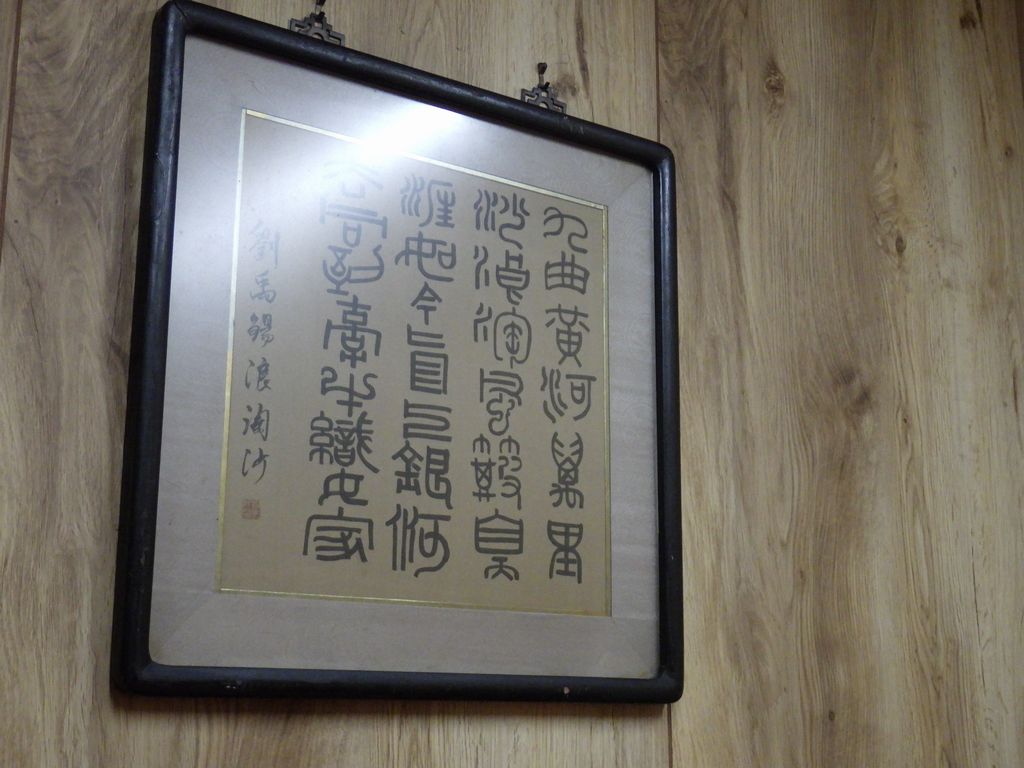 九曲黃河萬里
沙浪淘風簸自天
涯如今直上銀河
去同到牽牛織女家
劉禹錫浪淘沙